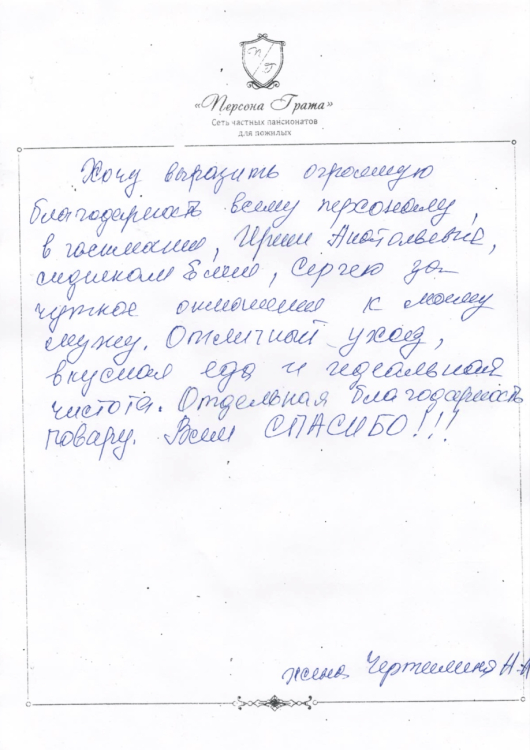 П Г
«Персона Грата»
Сеть частных пансионатов
для пожилых
Хочу выразить огромную
благодарность всему персоналу,
в , Ирине Анатольевне,
, Сергею за
чуткое отношение к моему
мужу. Отличный уход,
вкусная еда и идеальная
чистота. Отдельная благодарность
повару. Всем СПАСИБО!!!
жена Н.